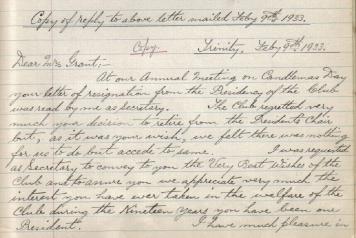 Copy of reply to above letter mailed Feby 9th, 1933.
Copy. Trinity, Feby 9th, 1933.
Dear Mrs Grant;-
At our Annual Meeting on Candlemas Day
your letter of resignation from the Presidency of the Club
was read by me as Secretary. The Club regretted very
much your decision to retire from the President's Chair
but, as it was your wish, we felt there was nothing
for us to do but accede to same. I was requested
as Secretary to convey to you the Very Best Wishes of the
Club and to assure you we appreciate very much the
interest you have ever taken in the welfare of the
Club during the Nineteen Years you have been our
President. I have much pleasure in